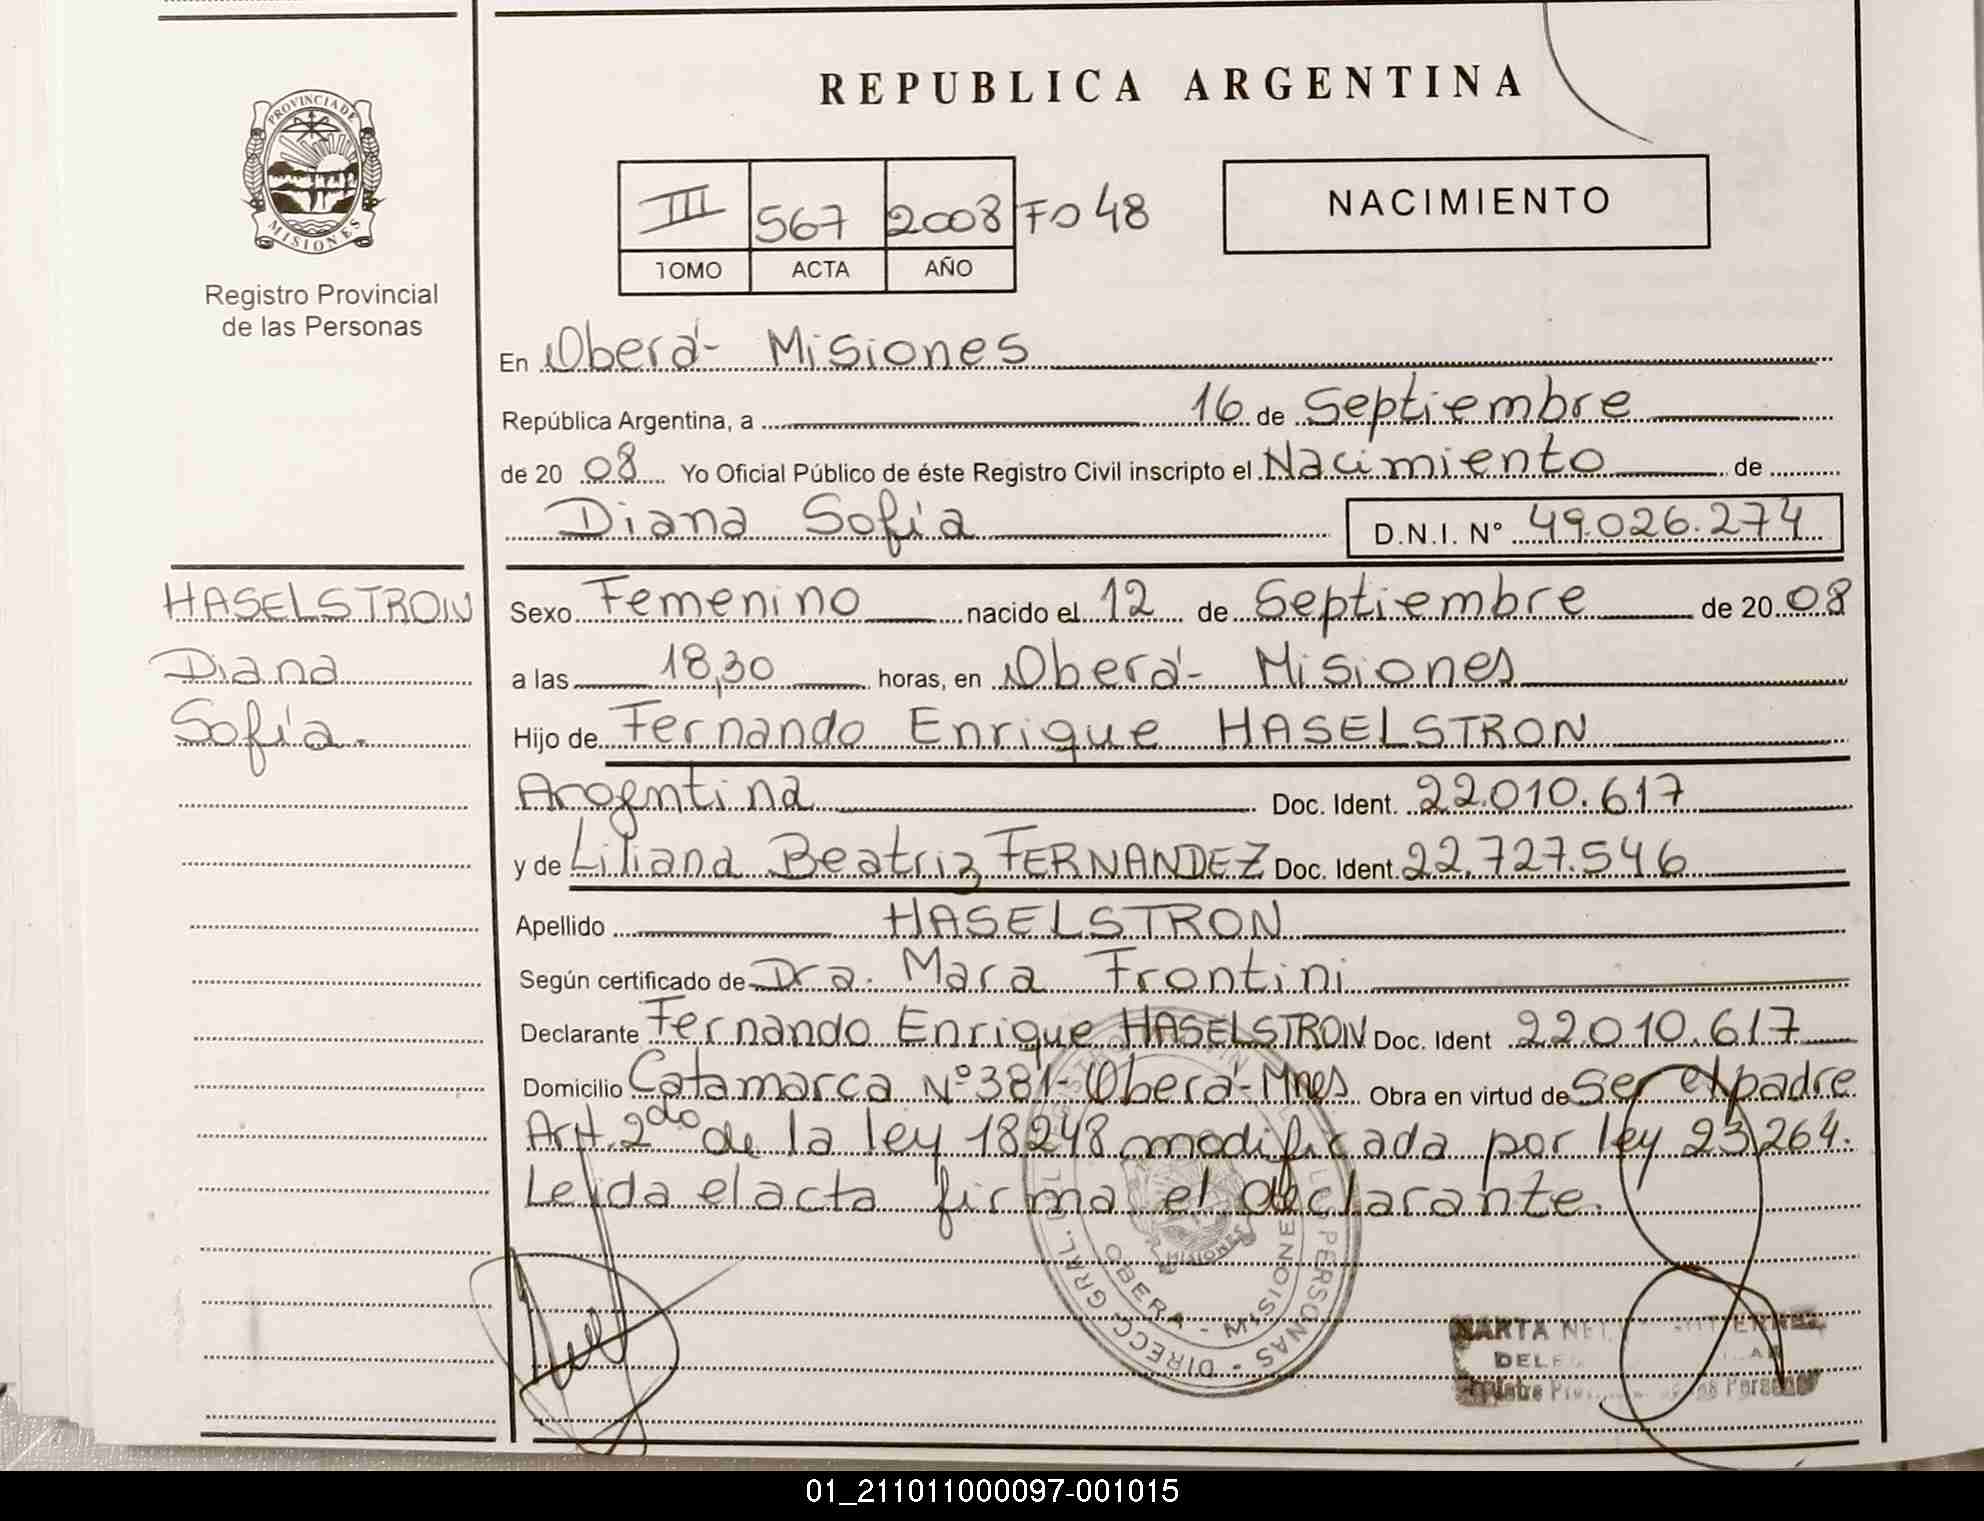 REPUBLICA ARGENTINA
PROVINCIA DE
MISIONES
Registro Provincial
de las Personas
III 567 2008 Fo 48
TOMO ACTA AÑO
NACIMIENTO
En Oberá - Misiones
República Argentina, a 16 de Septiembre
de 20 08 Yo Oficial Público de éste Registro Civil inscripto el Nacimiento de
Diana Sofía D.N.I. N° 49.026.274
HASELSTRON
Diana
Sofía.
Sexo Femenino nacido el 12 de Septiembre de 20 08
a las 18,30 horas, en Oberá - Misiones
Hijo de Fernando Enrique HASELSTRON
Argentina Doc. Ident. 22.010.617
y de Liliana Beatriz FERNANDEZ Doc. Ident. 22.727.546
Apellido HASELSTRON
Según certificado de Dra. Mara Frontini
Declarante Fernando Enrique HASELSTRON Doc. Ident 22.010.617
Domicilio Catamarca N° 381 - Oberá - Mnes Obra en virtud de Ser el padre
Art. 2do de la ley 18248 modificada por ley 23264.
Leída el acta firma el declarante.
MISIONES
OBERA - MISIONES
PERSONAS - DIRECC. GRAL. DEL
MARTA
01_211011000097-001015